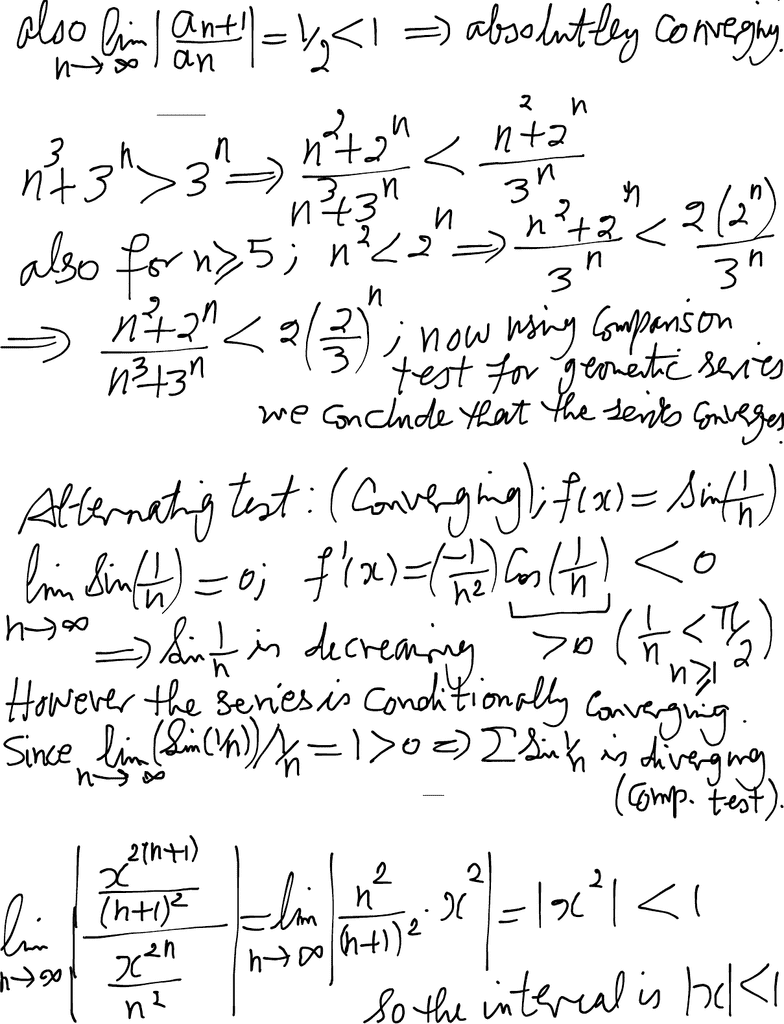 also lim n→∞ |aₙ₊₁/aₙ| = 1/2 < 1 ⇒ absolutley converging.
n³+3ⁿ > 3ⁿ ⇒ (n²+2ⁿ)/(n³+3ⁿ) < (n²+2ⁿ)/3ⁿ
also for n≥5; n² < 2ⁿ ⇒ (n²+2ⁿ)/3ⁿ < 2(2ⁿ)/3ⁿ
⇒ (n²+2ⁿ)/(n³+3ⁿ) < 2(2/3)ⁿ; now using Comparison
test for geometic series
we conclude that the series converges
Alternating test: (Converging); f(x) = Sin(1/n)
lim n→∞ Sin(1/n) = 0; f'(x) = (-1/n²) Cos(1/n) < 0
⇒ Sin 1/n is decreasing > 0 (1/n < π/2) n≥1
However the series is Conditionally Converging.
Since lim n→∞ (Sin(1/n))/1/n = 1 > 0 ⇒ Σ Sin 1/n is diverging
(Comp. test).
lim n→∞ |(x²⁽ⁿ⁺¹⁾/(n+1)²)/(x²ⁿ/n²)| = lim n→∞ |n²/(n+1)² · x²| = |x²| < 1
So the interval is |x| < 1